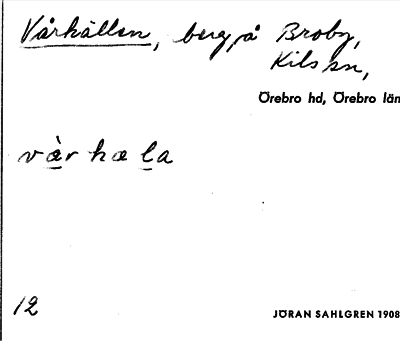 Vårhällen, berg, å Broby,
Kils sn,
Örebro hd, Örebro län
vàr hæ la
12
JÖRAN SAHLGREN 1908